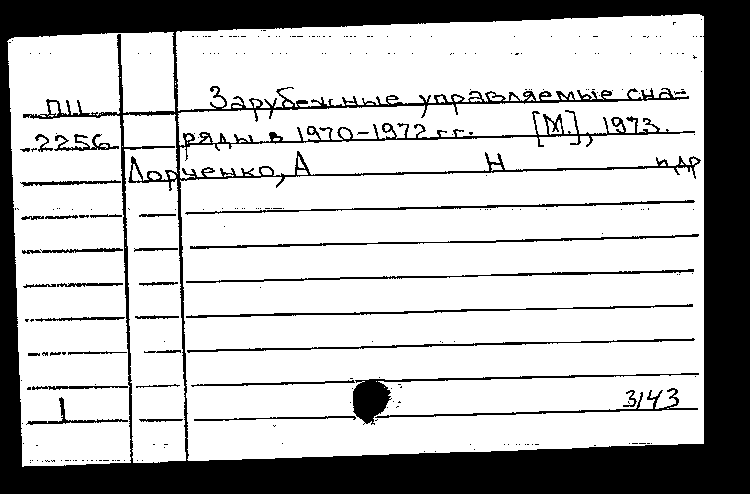 ПЦ Зарубежные управляемые сна=
2256 ряды в 1970-1972 гг. [М.], 1973.
Лорченко, А Н и др
1 3143